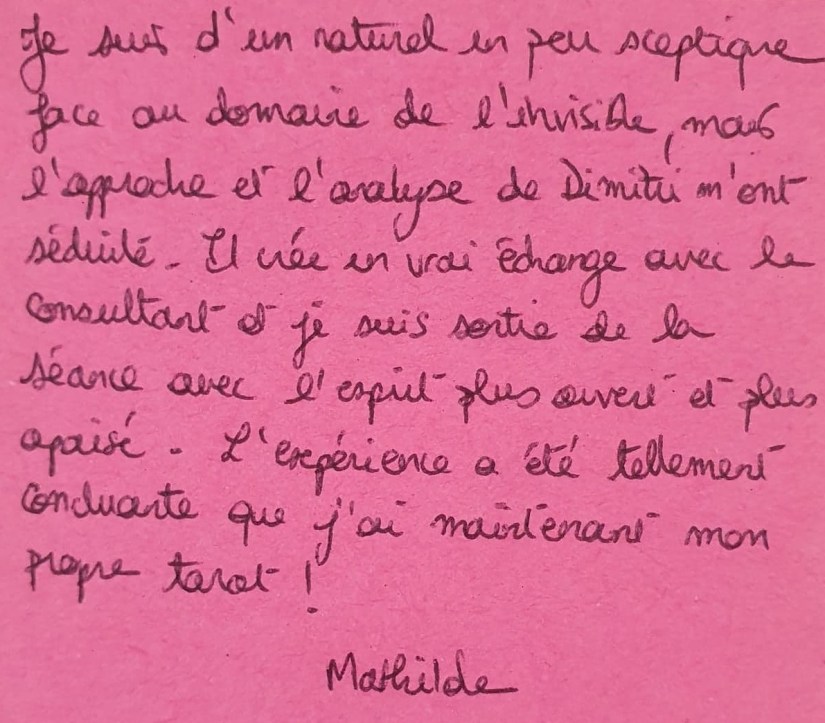 Je suis d'un naturel un peu sceptique
face au domaine de l'invisible, mais
l'approche et l'analyse de Dimitri m'ont
séduite. Il crée un vrai échange avec le
consultant et je suis sortie de la
séance avec l'esprit plus ouvert et plus
apaisé. L'expérience a été tellement
concluante que j'ai maintenant mon
propre tarot !
Mathilde